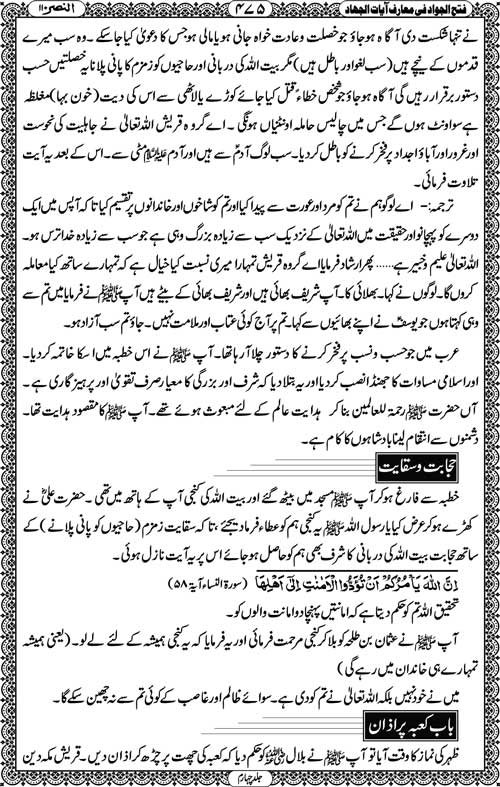 فتح الجواد فی معارف آیات الجهاد ۴۷۵ النصر ۱۱۰
نے تنہا شکست دی آگاہ ہو جاؤ جو خصلت و عادت خواہ جانی ہو یا مالی ہو جس کا دعویٰ کیا جاسکے۔ وہ سب میرے
قدموں کے نیچے ہیں (سب لغو اور باطل ہیں) مگر بیت اللہ کی دربانی اور حاجیوں کو زمزم کا پانی پلانا یہ خصلتیں حسب
دستور برقرار رہیں گی آگاہ ہو جاؤ جو شخص خطاءً قتل کیا جائے کوڑے یا لاٹھی سے اس کی دیت (خون بہا) مغلظہ
ہے سو اونٹ ہوں گے جس میں چالیس حاملہ اونٹنیاں ہونگی ۔ اے گروہ قریش اللہ تعالیٰ نے جاہلیت کی نحوست
اور غرور اور آباؤ اجداد پر فخر کرنے کو باطل کر دیا۔ سب لوگ آدمؑ سے ہیں اور آدم علیہ السلام مٹی سے۔ اس کے بعد یہ آیت
تلاوت فرمائی۔
ترجمہ:- اے لوگو ہم نے تم کو مرد اور عورت سے پیدا کیا اور تم کو شاخوں اور خاندانوں پر تقسیم کیا تاکہ آپس میں ایک
دوسرے کو پہچانو اور حقیقت میں اللہ تعالیٰ کے نزدیک سب سے زیادہ بزرگ وہی ہے جو سب سے زیادہ خدا ترس ہو۔
اللہ تعالیٰ علیم و خبیر ہے...... پھر ارشاد فرمایا اے گروہ قریش تمہارا میری نسبت کیا خیال ہے کہ تمہارے ساتھ کیا معاملہ
کروں گا۔ لوگوں نے کہا۔ بھلائی کا۔ آپ شریف بھائی ہیں اور شریف بھائی کے بیٹے ہیں آپ ﷺ نے فرمایا میں تم سے
وہی کہتا ہوں جو یوسفؑ نے اپنے بھائیوں سے کہا۔ تم پر آج کوئی عتاب اور ملامت نہیں۔ جاؤ تم سب آزاد ہو۔
عرب میں جو حسب و نسب پر فخر کرنے کا دستور چلا آ رہا تھا۔ آپ ﷺ نے اس خطبہ میں اسکا خاتمہ کر دیا۔
اور اسلامی مساوات کا جھنڈا نصب کر دیا اور یہ بتلا دیا کہ شرف اور بزرگی کا معیار صرف تقویٰ اور پرہیزگاری ہے ۔
آں حضرت ﷺ رحمۃ للعالمین بنا کر ہدایت عالم کے لئے مبعوث ہوئے تھے۔ آپ ﷺ کا مقصود ہدایت تھا۔
دشمنوں سے انتقام لینا بادشاہوں کا کام ہے۔
حجابت و سقایت
خطبہ سے فارغ ہو کر آپ ﷺ مسجد میں بیٹھ گئے اور بیت اللہ کی کنجی آپ کے ہاتھ میں تھی ۔ حضرت علیؓ نے
کھڑے ہو کر عرض کیا یا رسول اللہ ﷺ یہ کنجی ہم کو عطاء فرما دیجئے تاکہ سقایت زمزم (حاجیوں کو پانی پلانے) کے
ساتھ حجابت بیت اللہ کی دربانی کا شرف بھی ہم کو حاصل ہو جائے اس پر یہ آیت نازل ہوئی۔
اِنَّ اللّٰهَ یَاْمُرُکُمْ اَنْ تُؤَدُّوا الْاَمٰنٰتِ اِلٰٓی اَهْلِهَا (سورۃ النساء آیۃ ۵۸)
تحقیق اللہ تم کو حکم دیتا ہے کہ امانتیں پہنچا دو امانت والوں کو۔
آپ ﷺ نے عثمان بن طلحہ کو بلا کر کنجی مرحمت فرمائی اور یہ فرمایا کہ یہ کنجی ہمیشہ کے لئے لے لو۔ (یعنی ہمیشہ
تمہارے ہی خاندان میں رہے گی)
میں نے خود نہیں بلکہ اللہ تعالیٰ نے تم کو دی ہے۔ سوائے ظالم اور غاصب کے کوئی تم سے نہ چھین سکے گا۔
باب کعبہ پر اذان
ظہر کی نماز کا وقت آیا تو آپ ﷺ نے بلال رضی اللہ عنہ کو حکم دیا کہ کعبہ کی چھت پر چڑھ کر اذان دیں۔ قریش مکہ دین
جلد چہارم